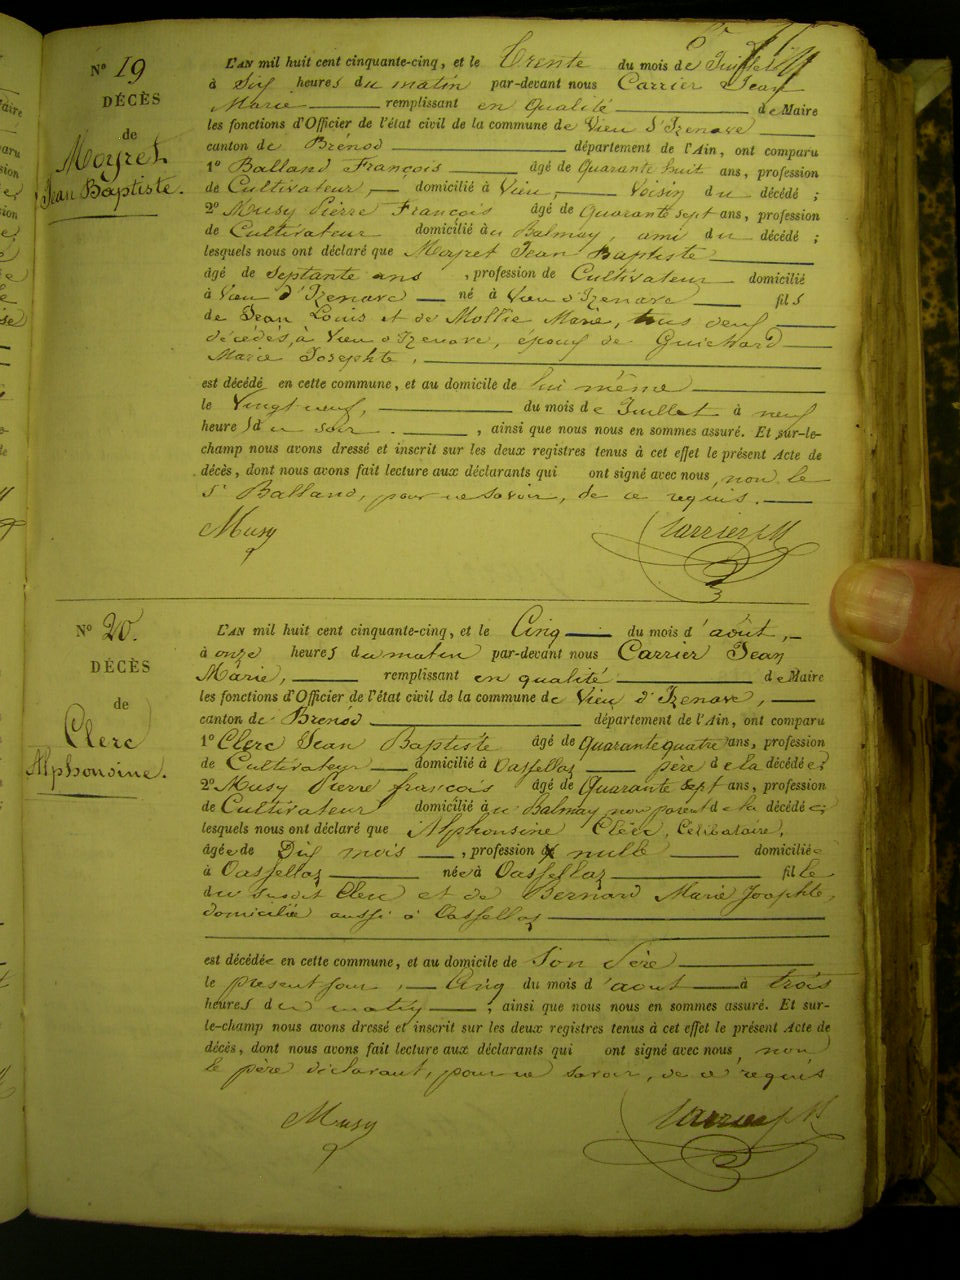 N° 19
DÉCÈS
de
Moyret
Jean Baptiste.
L'AN mil huit cent cinquante-cinq, et le Trente du mois de Juillet
à Six heures du matin par-devant nous Carrier Jean
Marie remplissant en qualité de Maire
les fonctions d'Officier de l'état civil de la commune de Vieu d'Izenave
canton de Brénod département de l'Ain, ont comparu
1° Balland François âgé de Quarante huit ans, profession
de Cultivateur, domicilié à Vieu, Voisin du décédé ;
2° Musy Pierre François âgé de Quarante sept ans, profession
de Cultivateur domicilié au Balmay, ami du décédé ;
lesquels nous ont déclaré que Moyret Jean Baptiste
âgé de septante ans, profession de Cultivateur domicilié
à Vieu d'Izenave né à Vieu d'Izenave fils
de Jean Louis et de Mollie Marie, tous deux
décédés, à Vieu d'Izenave, époux de Guichard
Marie Josephte,
est décédé en cette commune, et au domicile de lui même
le Vingt neuf, du mois de Juillet à neuf
heures du soir, ainsi que nous nous en sommes assuré. Et sur-le-
champ nous avons dressé et inscrit sur les deux registres tenus à cet effet le présent Acte de
décès, dont nous avons fait lecture aux déclarants qui ont signé avec nous, non le
St Balland, pour ne savoir, de ce requis.
Musy Carrier JM
N° 20.
DÉCÈS
de
Clerc
Alphonsine.
L'AN mil huit cent cinquante-cinq, et le Cinq du mois d'août,
à onze heures du matin par-devant nous Carrier Jean
Marie, remplissant en qualité de Maire
les fonctions d'Officier de l'état civil de la commune de Vieu d'Izenave,
canton de Brenod département de l'Ain, ont comparu
1° Clerc Jean Baptiste âgé de Quarante quatre ans, profession
de Cultivateur domicilié à Oassellaz père de la décédée ;
2° Musy Pierre françois âgé de Quarante sept ans, profession
de Cultivateur domicilié au Balmay non parent de la décédée ;
lesquels nous ont déclaré que Alphonsine Clerc, Célibataire,
âgée de Dix mois, profession nulle domiciliée
à Oassellaz née à Oassellaz fille
du susdit Clerc et de Bernard Marie Josephte,
domiciliée aussi à Oassellaz
est décédée en cette commune, et au domicile de Son Père
le présent jour, Cinq du mois d'aout à trois
heures du matin, ainsi que nous nous en sommes assuré. Et sur-
le-champ nous avons dressé et inscrit sur les deux registres tenus à cet effet le présent Acte de
décès, dont nous avons fait lecture aux déclarants qui ont signé avec nous, non
le père déclarant, pour ne savoir, de ce requis
Musy Carrier JM